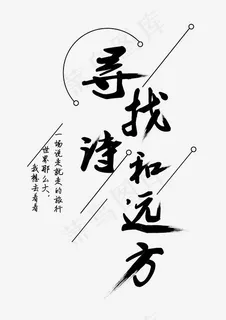 寻找
诗和远方
一场说走就走的旅行
世界那么大，
我想去看看